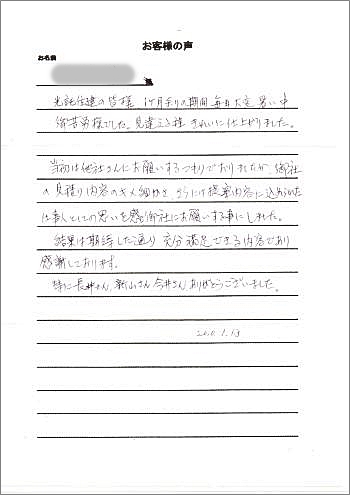 お客様の声
お名前
様
光託住建の皆様 1ヶ月余りの期間 毎日大変暑い中
御苦労様でした。見違える程 きれいに仕上がりました。
当初は他社さんにお願いするつもりでおりましたが、御社
の見積り内容のきめ細かさ、さらには提案内容に込められた
仕事人としての思いを感じ御社にお願いする事にしました。
結果は期待した通り 充分満足できる内容であり
感謝しております。
特に長井さん、新山さん 今井さん ありがとうございました。